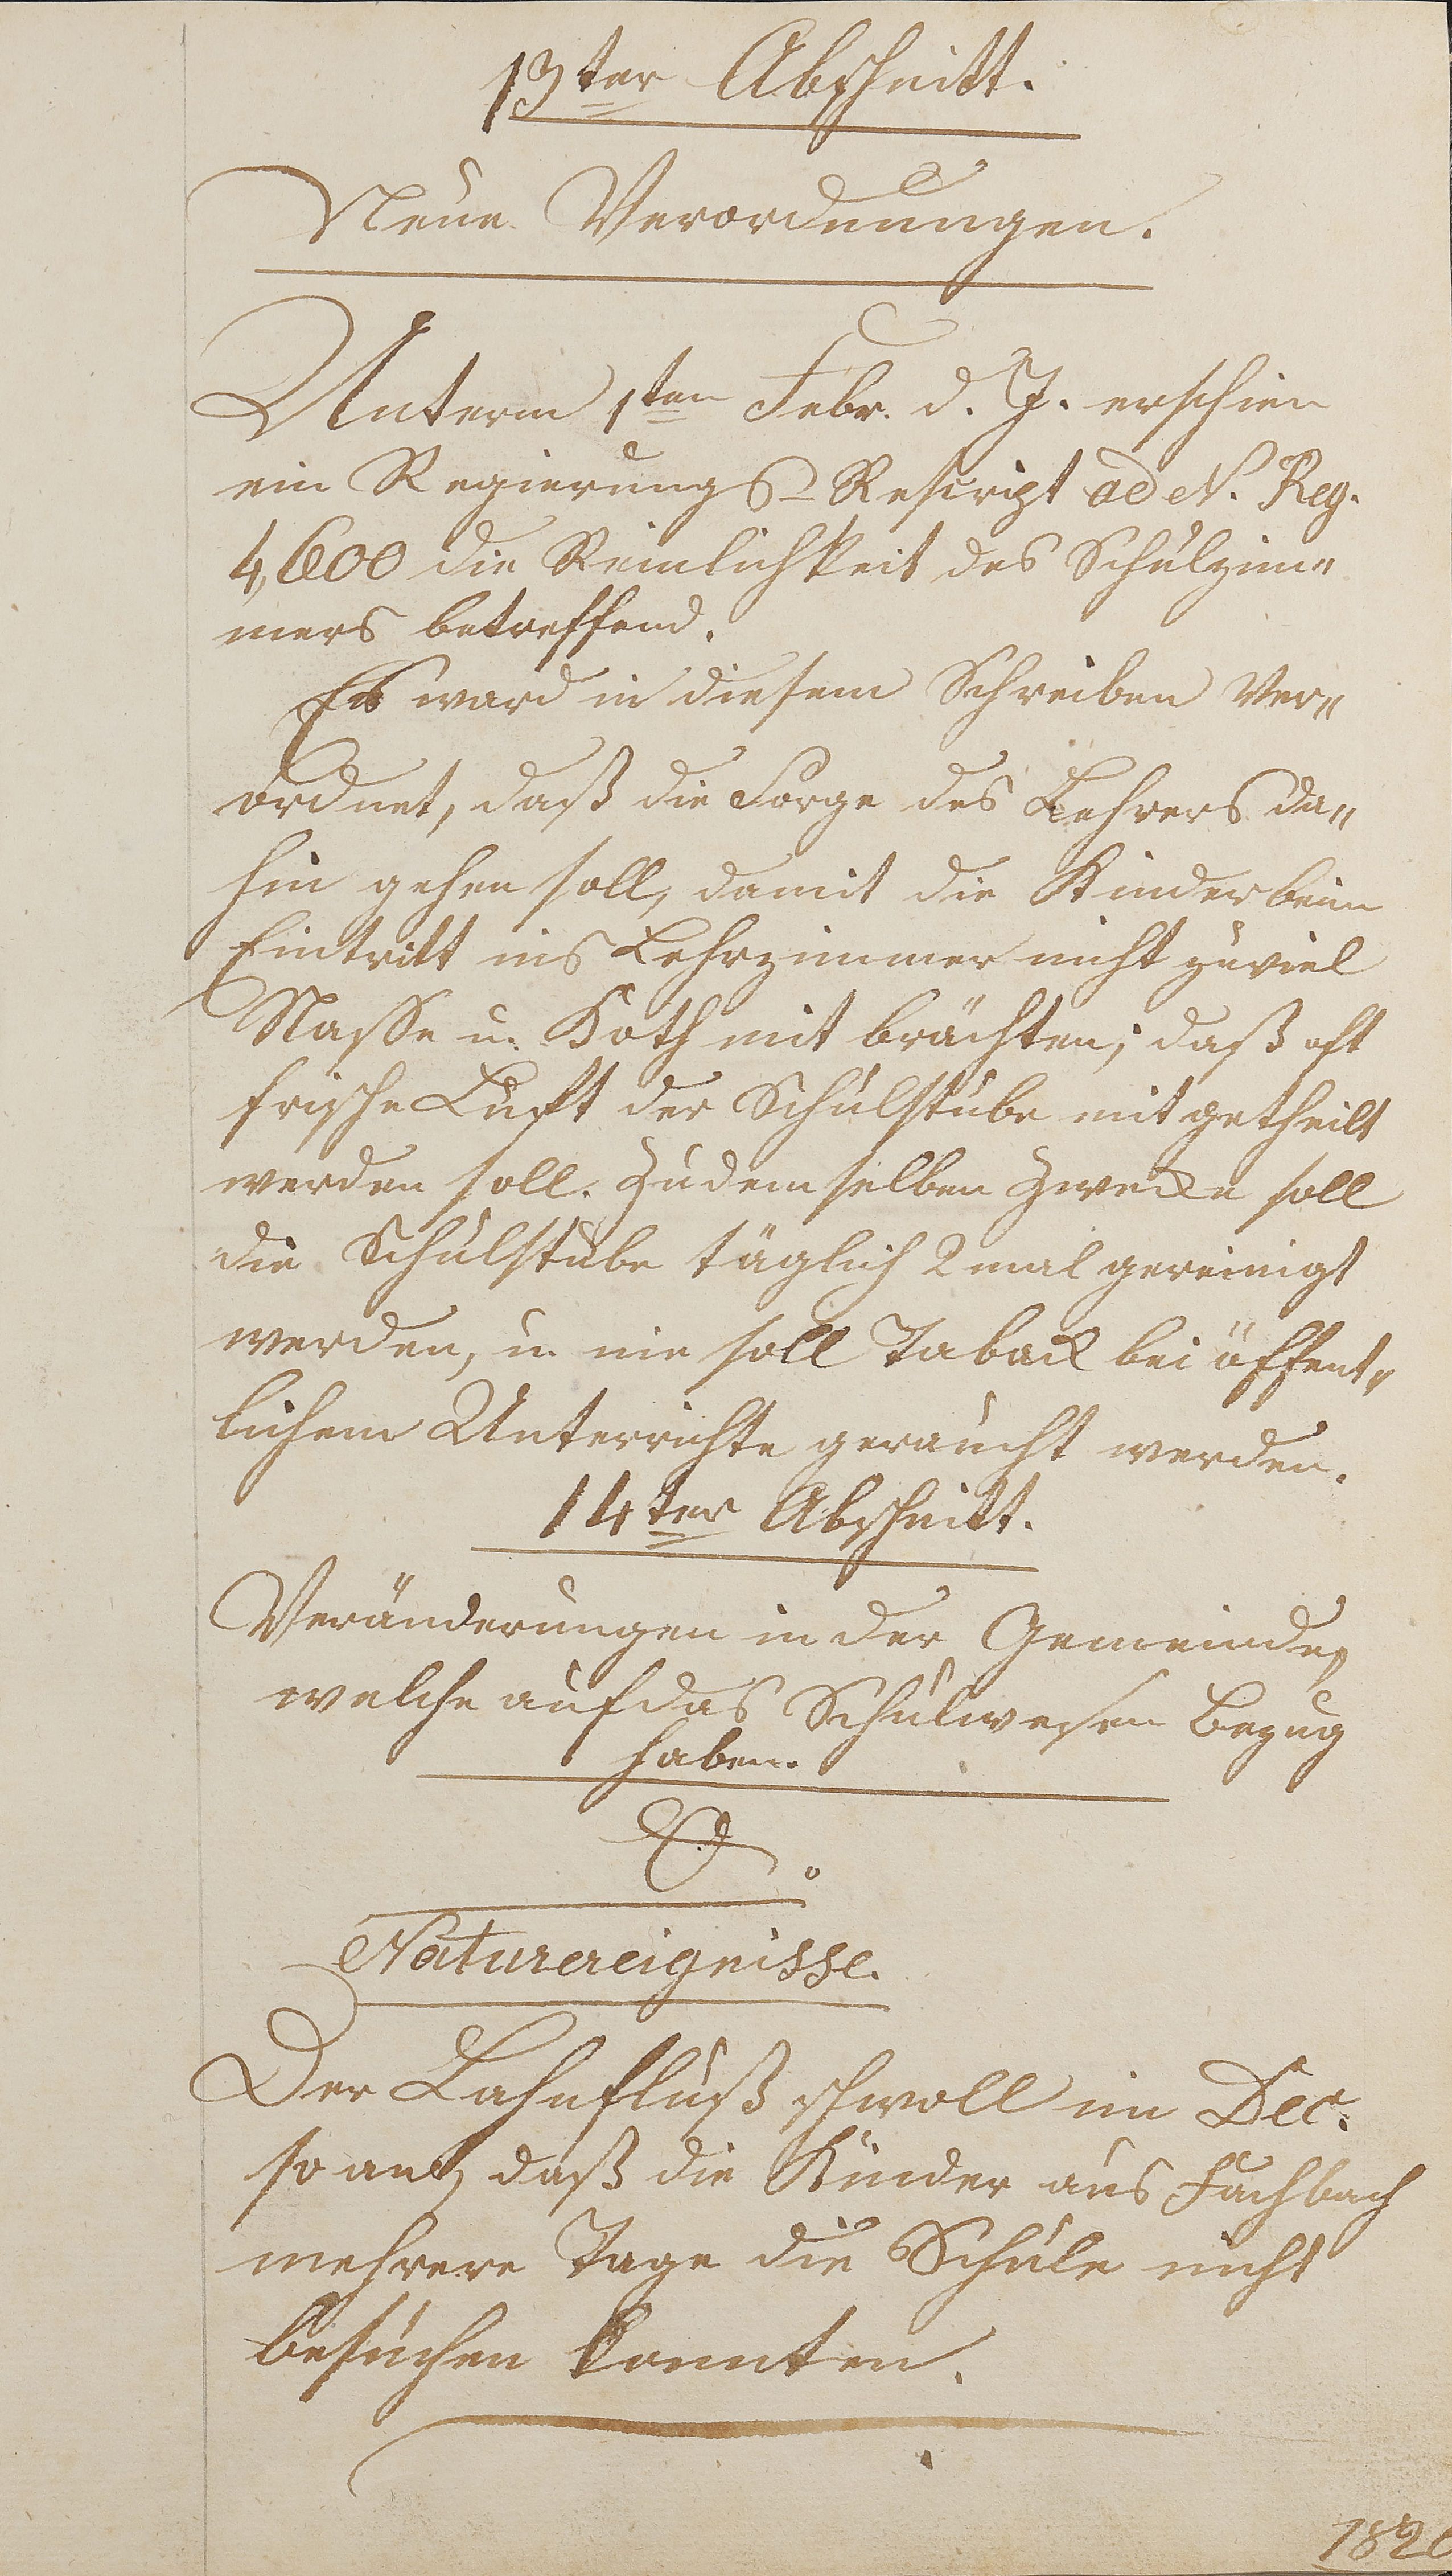 13ter Abschnitt.
Neue Verordnungen.
Unterm 1ten Febr. d. J. erschien
ein Regierungs-Rescript ad N. Reg.
4,600 die Reinlichkeit des Schulzim„
mers betreffend.
Es ward in diesem Schreiben ver„
ordnet, daß die Sorge des Lehrers da„
hin gehen soll, damit die Kinder beim
Eintritt ins Lehrzimmer nicht zuviel
Nasse u. Koth mit brächten; daß oft
frische Luft der Schulstube mit getheilt
werden soll. Zu dem selben Zwecke soll
die Schulstube täglich 2 mal gereinigt
werden, u. nie soll Taback bei öffent„
lichem Unterrichte geraucht werden.
14ter Abschnitt.
Veränderungen in der Gemeinde,
welche auf das Schulwesen Bezug
haben.
Naturereignisse.
Der Lahnfluß schwoll im Dec.
so an, daß die Kinder aus Fachbach
mehrere Tage die Schule nicht
besuchen konnten.